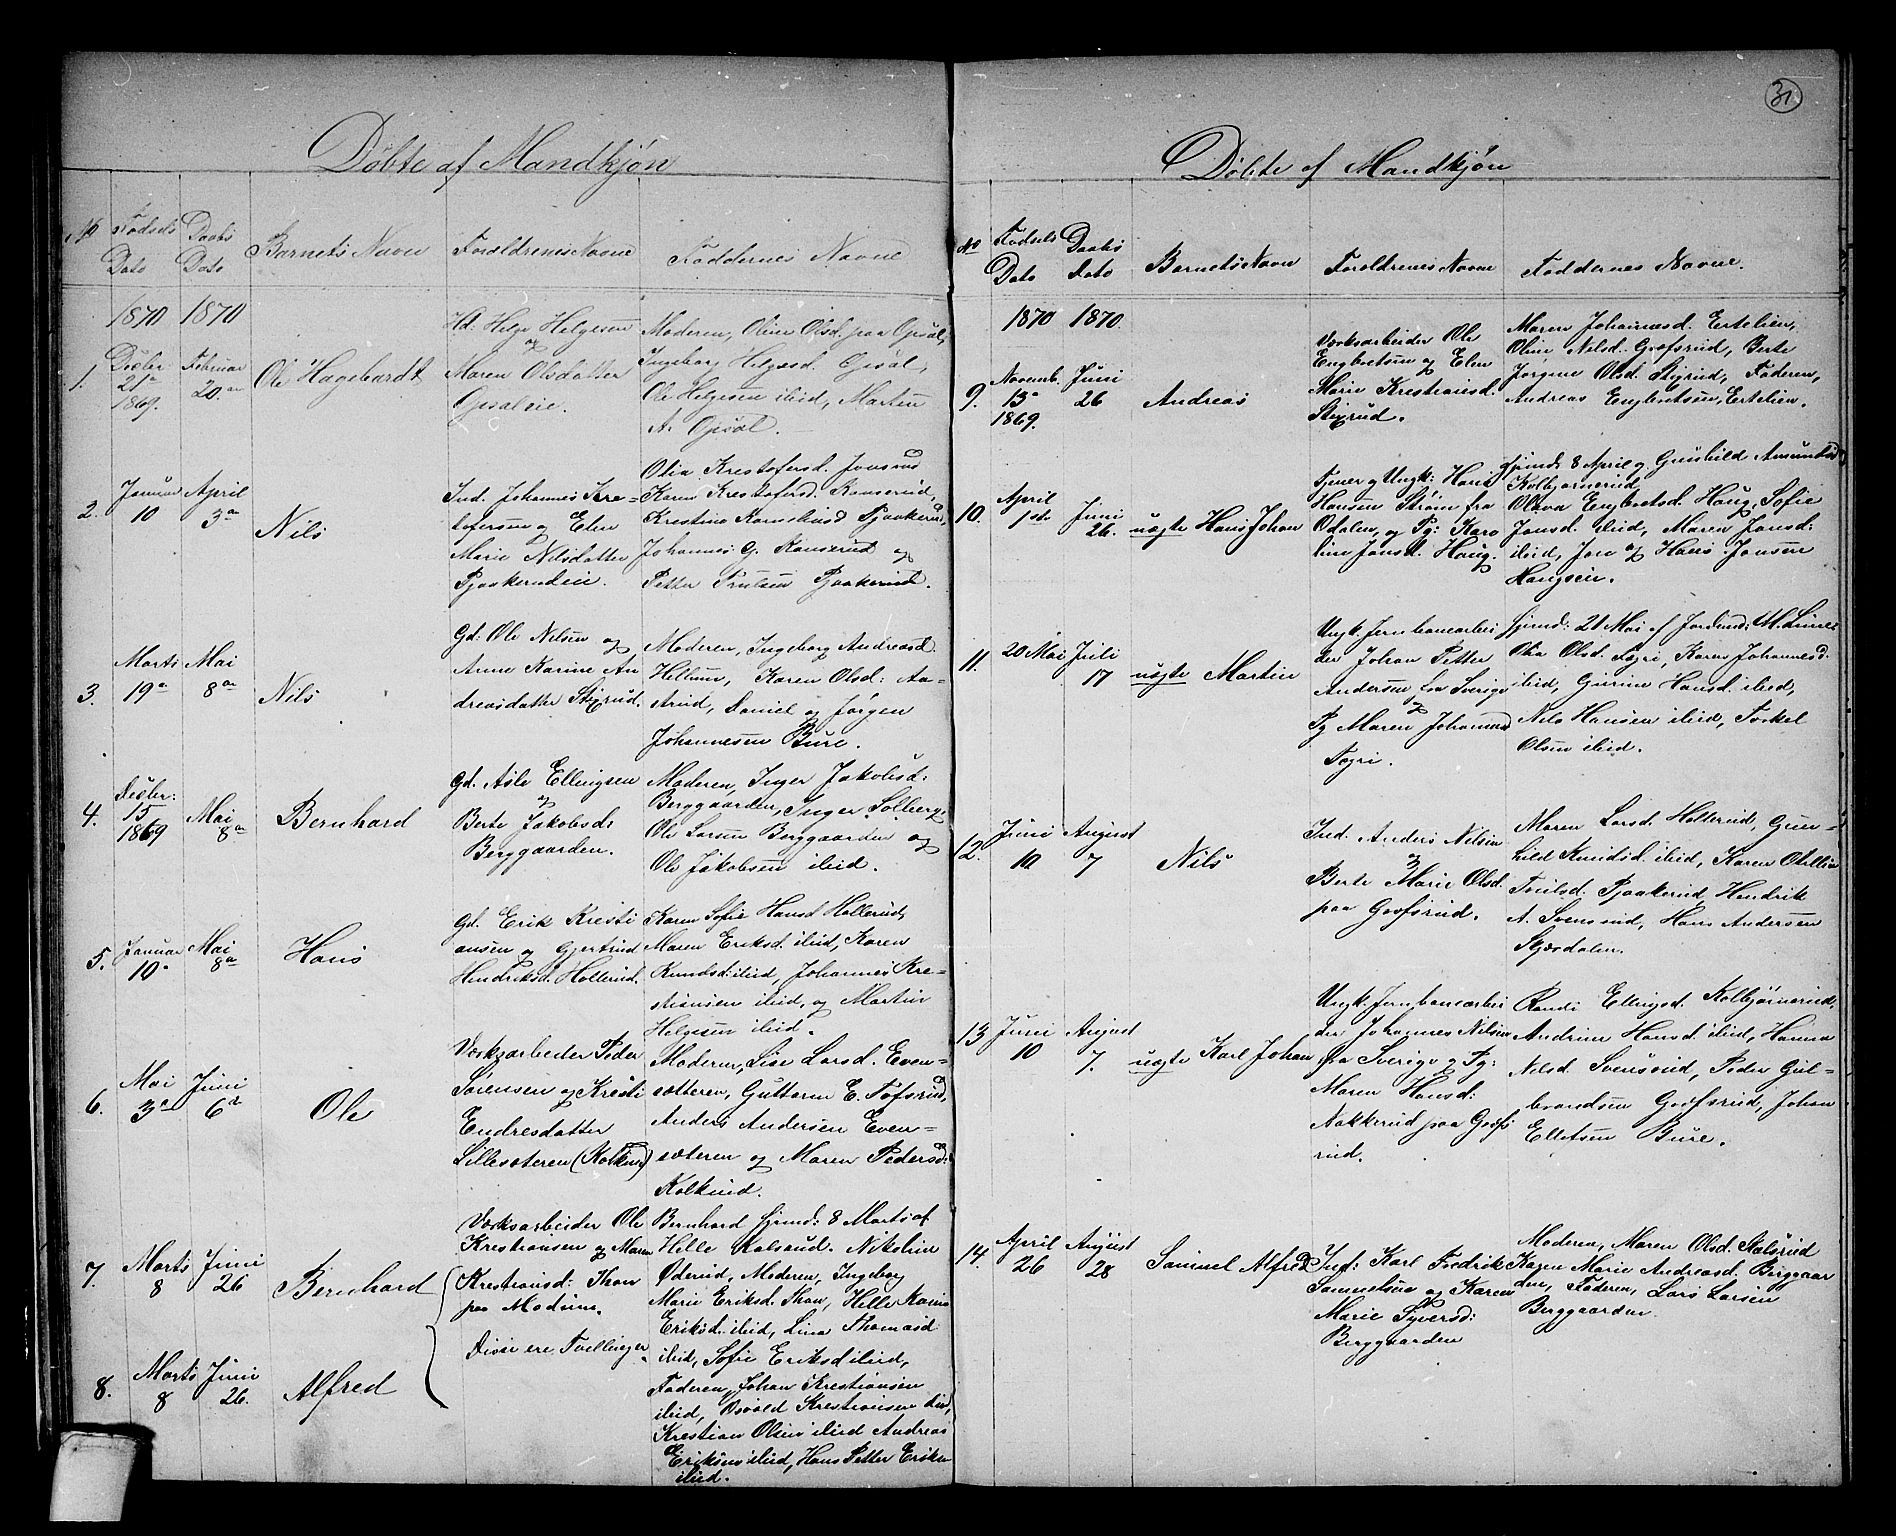 31
Døbte af Mandkjøn
No
Fødsels Dato
Daabs Dato
Barnets Navn
Forældrenes Navne
Faddernes Navne
1870
1870
1.
Decbr 21de 1869.
Februar 20de
Ole Hagebardt
Hd: Helge Helgesen
og
Maren Olsdatter
Opsaleie.
Moderen, Oline Olsd. paa Opsal,
Ingeborg Helgesd. Opsal,
Ole Helgesen ibid, Martin
A. Opsal.
2.
Januar 10
April 3de
Nils
Ind. Johannes Kre-
stofersen og Elen
Marie Nilsdatter
Pjaakerudeie.
Olia Krestofersd. Jonsrud
Karen Krestofersd. Ramserud,
Kristine Ramserud Pjaakerud,
Johannes G. Ramserud og
Petter Truelsen Pjaakerud.
3.
Marts 19de
Mai 8de
Nils
Gd: Ole Nilsen og
Anne Karine An
dreasdatter Stixrud.
Moderen, Ingeborg Andreasd.
Hellum, Karen Olsd: Aa-
strud, Daniel og Jørgen
Johannesen Bure.
4.
Decbr: 15 1869
Mai 8de
Bernhard
Gd. Asle Ellingsen
og
Berte Jakobsd:
Berggaarden.
Moderen, Inger Jakobsd:
Berggaarden, Inger Solberg,
Ole Larsen Berggaarden og
Ole Jakobsen ibid.
5.
Januar 10de
Mai 8de
Hans
Gd. Erik Kresti
ansen og Gjertrud
Hendriksd. Hollerud.
Karen Sofie Hansd Hollerud,
Maren Eriksd. ibid, Karen
Knudsd: ibid, Johannes Kre-
stiansen ibid, og Martin
Helgesen ibid.
6.
Mai 3de
Juni 6te
Ole
Værksarbeider Peder
Sørensen og Kresti
Endresdatter
Lillesæteren (Kolkind)
Moderen, Lise Larsd. Even-
sætteren, Guttorm E. Tofsrud,
Anders Andersen Even-
sæteren og Maren Pedersd:
Kolkind.
7.
Marts 8
Juni 26
Bernhard
Værksarbeider Ole
Krestiansen og Maren
Krestiansd: Thon
paa Modum.
Disse ere Tvillinger.
Bernhard hjmd: 8 Marts af
Helle Kalsrud. Nikoline
Øderud, Moderen, Ingeborg
Marie Eriksd. Thon, Helle Karine
Eriksd. ibid, Lina Thomasd
ibid, Sofie Eriksd ibid,
Faderen, Johan Krestiansen
ibid, Osvald Krestiansen ibid,
Krestian Olsen ibid Andreas
Eriksen ibid, Hans Petter Eriksen
ibid.
8.
Marts 8
Juni 26.
Alfred
Døbte af Mandkjøn
No
Fødsels Dato
Daabs Dato
Barnets Navn
Forældrenes Navne
Faddernes Navne.
1870
1870.
9.
Novemb. 13de 1869.
Juni 26
Andreas
Værksarbeider Ole
Engbretsen og Elen
Marie Krestiansd.
Stixrud.
Maren Johannesd. Ertelien,
Oline Nilsd. Grofsrud, Berte
Jørgine Olsd. Stixrud, Faderen,
Andreas Engbretsen, Ertelien.
10.
April 1ste
Juni 26.
uægte Hans Johan
Tjener og Ungk: Hans
Hansen Strøm fra
Odalen, og Pg: Karo
line Jonsd. Haug.
hjmd: 8 April g. Grushild Amundsd
Kolbjørnerud
Olava Engbretsd. Haug, Sofie
Jonsd. ibid, Maren Jonsd:
ibid, Jon og Hans Jonsen
Haugseie.
11.
20 Mai
Juli 17
uægte Martin
Ungk. Jernbanearbei
der Johan Petter
Andersen fra Sverige
og
Pg Maren Johannesd
Togri.
hjmd: 21 Mai af Jordmd: M. Linnes
Olia Olsd. Togri, Karen Johannesd.
ibid, Gurine Hansd. ibid,
Nils Hansen ibid, Torkel
Olsen ibid.
12.
Juni 10
August 7
Nils
Ind. Anders Nilsen
og
Berte Marie Olsd.
paa Grofsrud.
Maren Larsd. Hollerud, Gun-
hild Knudsd. ibid, Karen Otillia
Truelsd. Pjaakerud, Hendrik
A. Svensrud, Hans Andersen
Skjærdalen.
13
Juni 10
August 7.
uægte Karl Johan
Ungk. Jernbanearbei
der Johannes Nilsen
fra Sverige og Pg:
Maren Hansd:
Nakkerud paa Grofs
rud.
Randi Ellingsd. Kolbjørnerud,
Andrine Hansd. ibid, Hanna
Nilsd. Svensrud, Peder Gul-
brandsen Grofsrud, Johan
Ellefsen Bure.
14.
April 26
August 28
Samuel Alfred
Ind: Karl Fredrik
Samuelsen og Karen
Marie Syversd:
Berggaarden
Moderen, Maren Olsd. Stalsrud
Karen Marie Andreasd. Berggaar
den, Faderen, Lars Larsen
Berggaarden